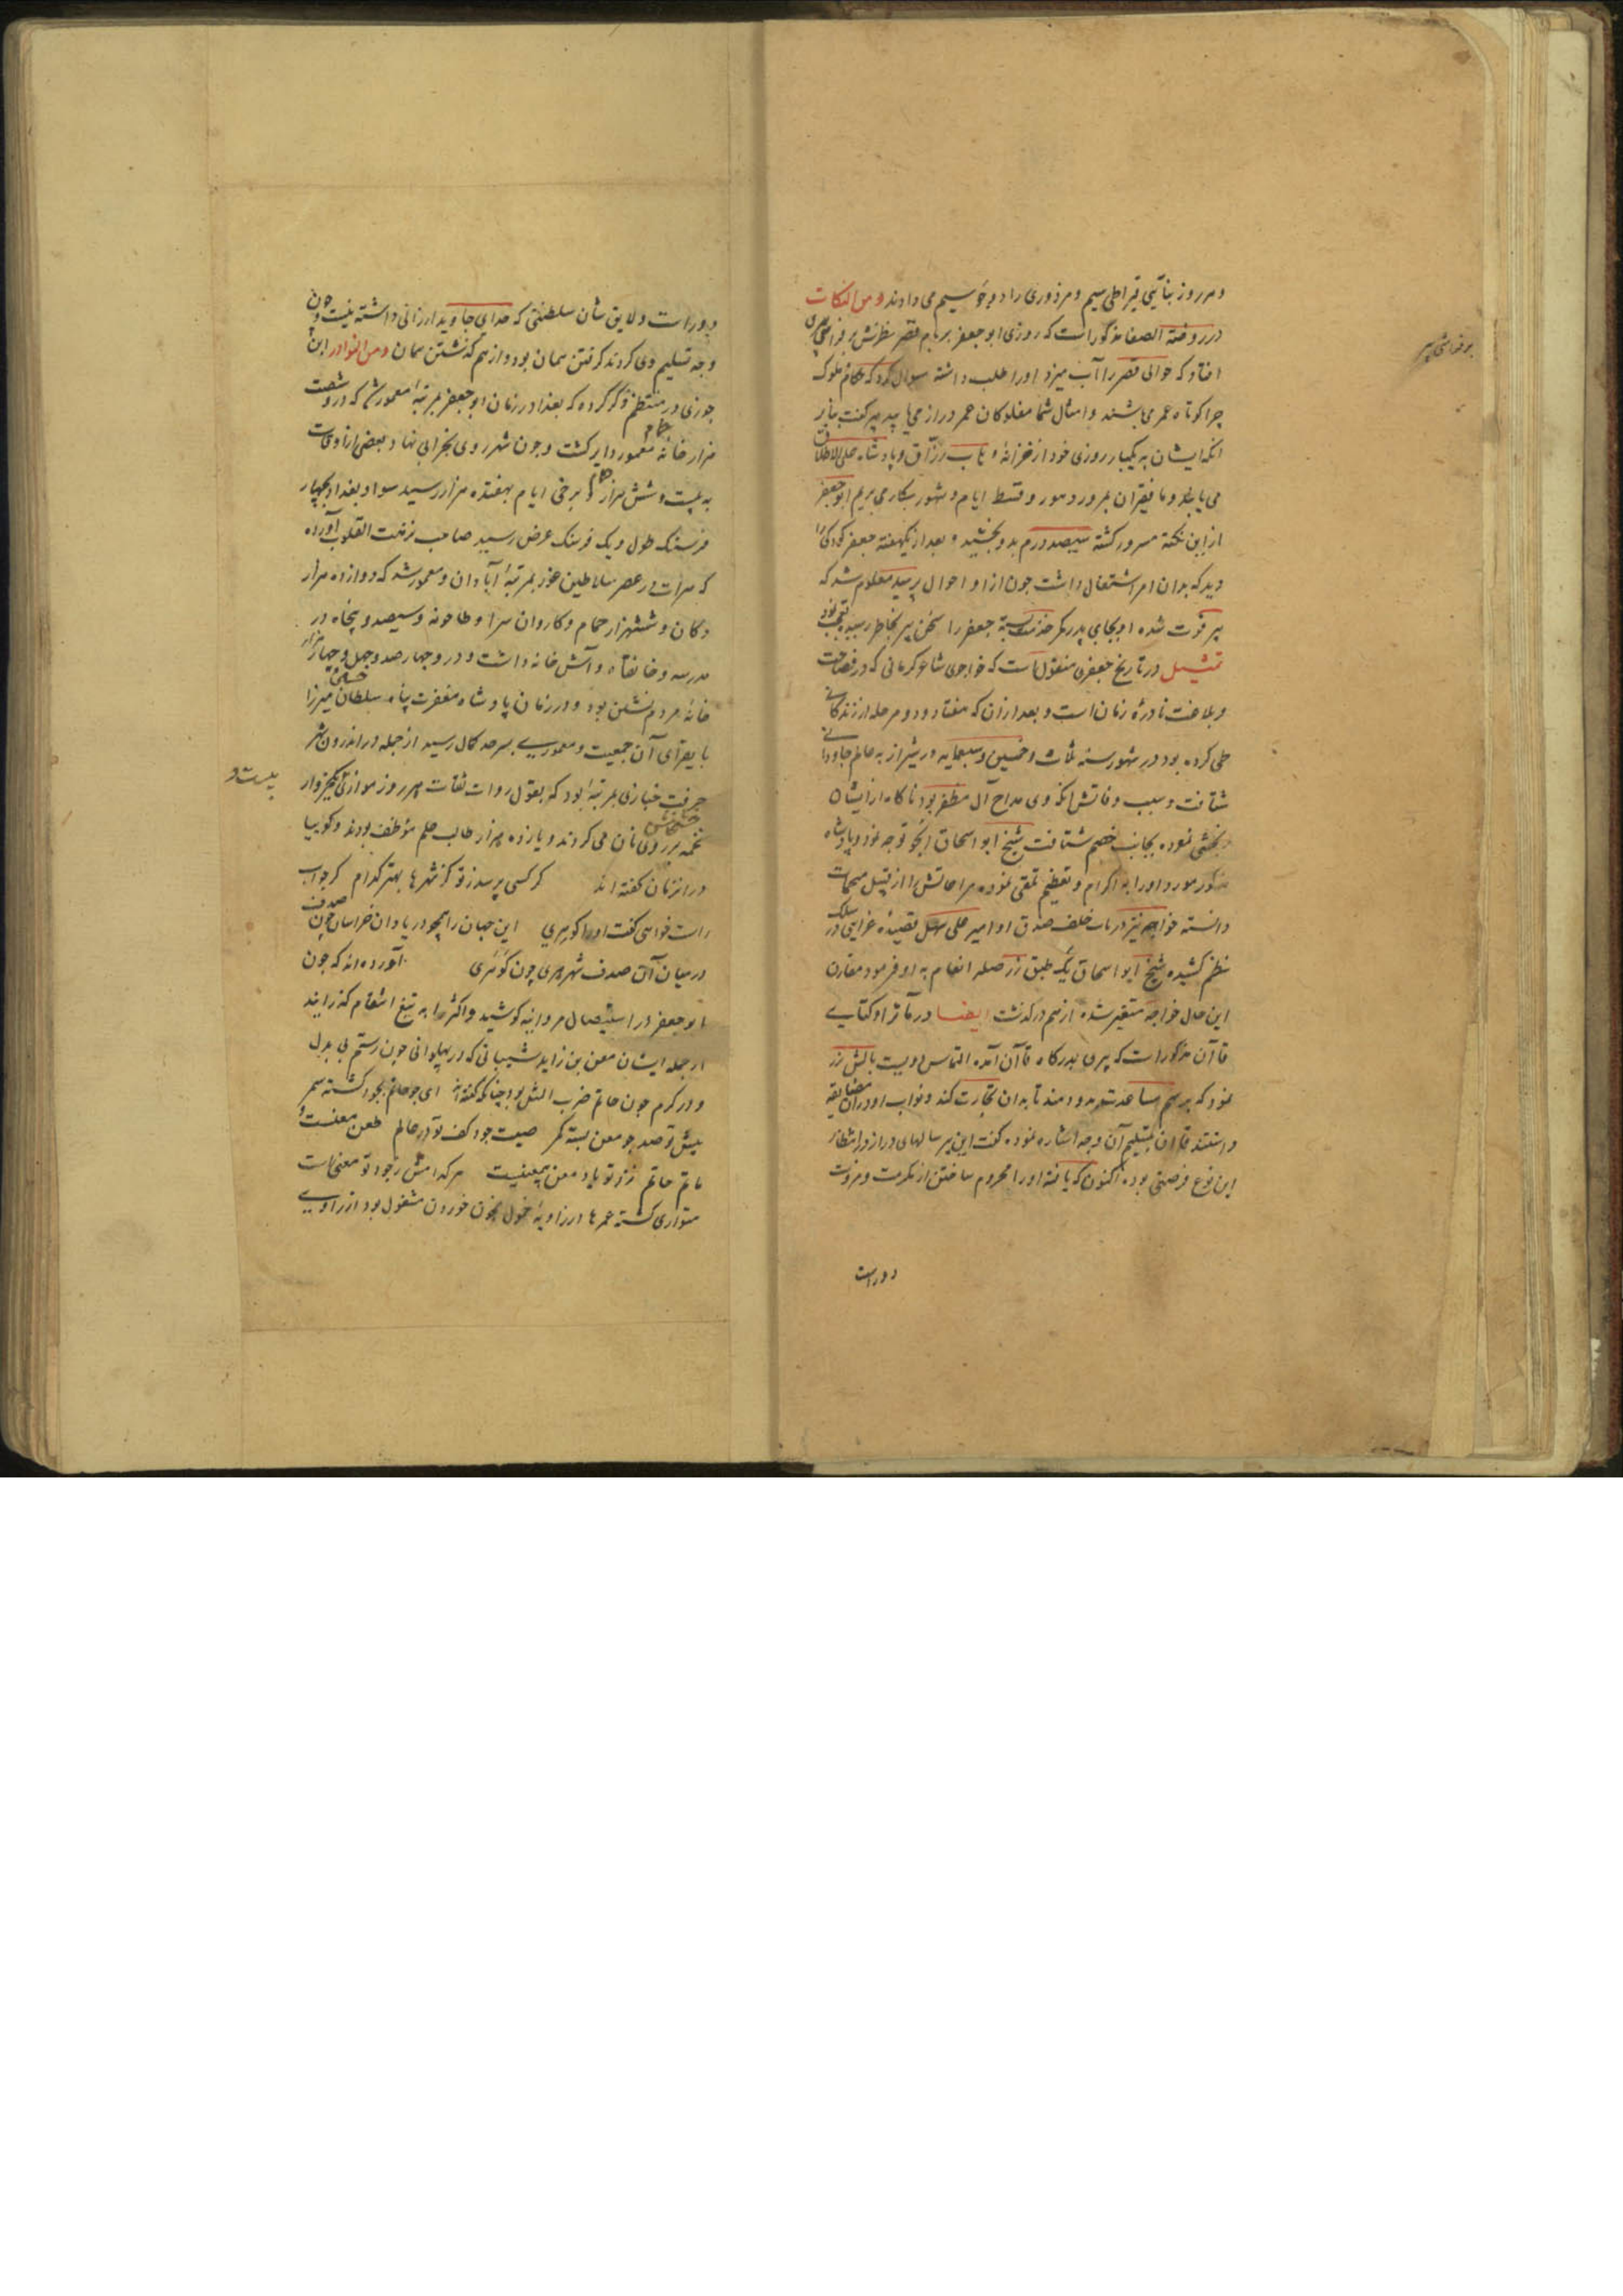 و هر روز بنائی قیراطی سیم و مزدوری را دو جو سیم می دادند و من النکات
در روضة الصفا مذکور است که روزی ابو جعفر بر بام قصر نظرش بر فراشی پیری
افتاد که حوالی قصر را آب میزد او را طلب داشته سوال کرد که حکام ملوک
چرا کوتاه عمر می باشند و امثال شما مفلوکان عمر دراز می یابید پیر گفت بنابر
انکه ایشان به یکبار روزی خود از خزانه وهاب رزاق و پادشاه علی الاطلاق
می یابند و ما فقیران بمرور دهور و قسط ایام و شهور بکار می بریم ابو جعفر
از این نکته مسرور گشته سیصد درم بدو بخشید و بعد از یکهفته جعفر کودکی را
دید که بدان امر اشتغال داشت چون از او احوال پرسید معلوم شد که
پیر فوت شده او بجای پدر کمر خدمت بسته جعفر را سخن پیر بخاطر رسیده تعجب نمود
تمثیل در تاریخ جعفری منقول است که خواجوی شاعر کرمانی که در فصاحت
و بلاغت نادرهٔ زمان است و بعد از آن که هفتاد و دو مرحله از زندگانی
طی کرده بود در شهور سنه ثلث و خمسین و سبعمایه در شیراز به عالم جاودانی
شتافت و سبب وفاتش انکه وی مداح آل مظفر بود ناگاه از ایشان
رنجشی نموده بجانب خصم شتافت شیخ ابو اسحاق انجو توجه نمود و پادشاه
مذکور مورد او را به اکرام و تعظیم تلقی نموده مراعاتش را از قبیل مهمات
دانسته خواجه نیز در باب خلف صدق او امیر علی سهل قصیدهٔ غرایی در سلک
نظم کشیده شیخ ابو اسحاق یک طبق زر صله انعام به او فرمود مقارن
این حال خواجه متغیر شده از هم درگذشت ایضا در مآثر او کتابی
قاآن مذکور است که پیری بدرگاه قاآن آمده التماس دویست بالش زر
نمود که بر سم مساعدت بدو دهند تا بدان تجارت کند و نواب او در آن مضایقه
داشتند قاآن بتسلیم آن وجه اشاره نموده گفت این پیر سالهای دراز در انتظار
این نوع فرصتی بوده اکنون که یافته او را محروم ساختن از مکرمت و مروت
دور است
بر فراشی پیر
دور است و لایق شان سلطنتی که خدای جاوید ارزانی داشته نیست چون
وجه تسلیم وی کردند گرفتن همان بود و از هم گذشتن همان و من النوادر ابن
جوزی در منتظم ذکر کرده که بغداد در زمان ابو جعفر بمرتبهٔ معمور شد که در و شصت
هزار خانه حمام معمور دایر گشت و چون شهر روی بخرابی نهاد و بعضی از اوقات
به بیست و شش هزار برخی ایام بهفده هزار رسید سواد بغداد بچهار
فرسنگ طول و یک فرسنگ عرض رسید صاحب نزهت القلوب آورده
که هرات در عصر سلاطین غور بمرتبهٔ آبادان و معمور شد که دوازده هزار
دکان و ششهزار حمام و کاروان سرا و طاحونه و سیصد و پنجاه و
مدرسه و خانقاه و آتش خانه داشت و در و چهار صد و چهل و چهار هزار
خانه مردم نشین بود و در زمان پادشاه مغفرت پناه سلطان حسین میرزا
بایقرای آن جمعیت و معموری بسرحد کمال رسید از جمله در اندرون شهر
حرفت خبازی بمرتبهٔ بود که بقول روات ثقات هر روز موازی یکخروار
بیست و
تخمه خشخاش بر روی نان می کردند و یازده هزار طالب علم موظف بودند و گوییا
در انزمان گفته اند گر کسی پرسد ز تو کز شهرها بهتر کدام گر جواب
راست خواهی گفت او را گو هری این جهان را همچو دریا دان خراسان چون صدف
در میان آن صدف شهر هری چون گوهری آورده اند که چون
ابو جعفر در استیصال مروانیه کوشید و اکثر را به تیغ انتقام گذرانید
از جمله ایشان معن بن زاید شیبانی که در پهلوانی چون رستم بی بدل
و در کرم چون حاتم ضرب المثل بود چنانکه گفته اند ای چو حاتم بجود گشته سمر
پیش تو صد چو معن بسته کمر صیت جود کف تو در عالم طعن معنست و
ماتم حاتم نزد تو یاد معن بیمعنیست هر که امش ز جود تو معنی است
متواری گشته عمرها در زاویهٔ خمول بخون خوردن مشغول بود از راوی